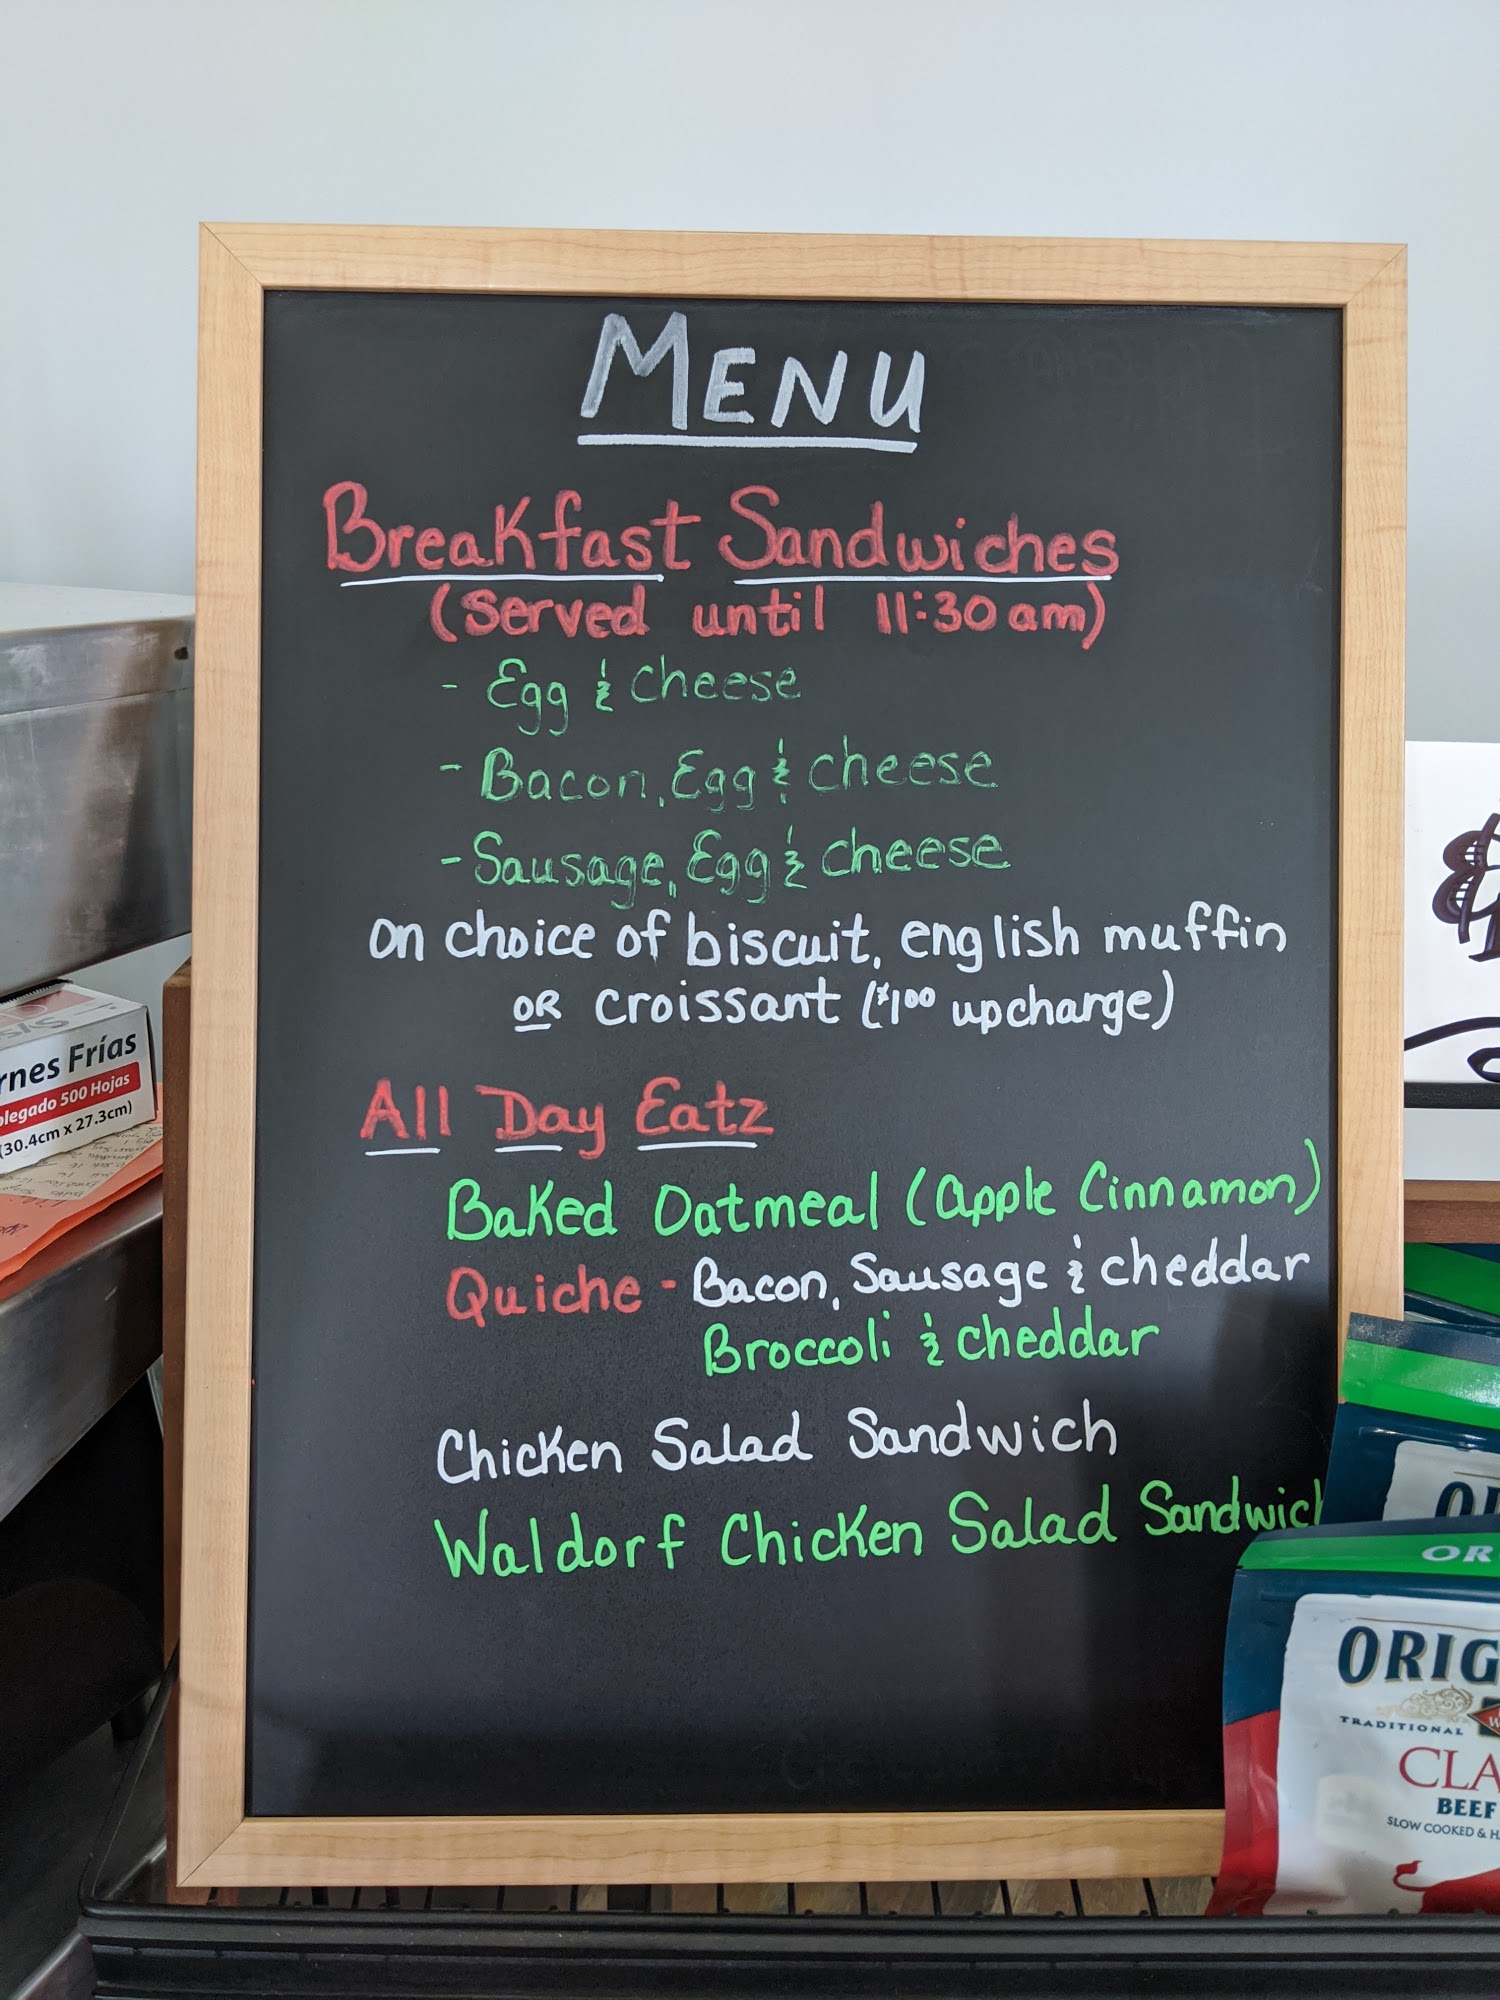 MENU
Breakfast Sandwiches
(Served until 11:30 am)
- Egg & cheese
- Bacon, Egg & cheese
- Sausage, Egg & cheese
on choice of biscuit, english muffin
OR croissant ($1.00 upcharge)
All Day Eatz
Baked Oatmeal (apple Cinnamon)
Quiche - Bacon, Sausage & cheddar
Broccoli & cheddar
Chicken Salad Sandwich
Waldorf Chicken Salad Sandwich
rnes Frías
plegado 500 Hojas
(30.4cm x 27.3cm)
OR
ORIG
TRADITIONAL
CLA
BEEF
SLOW COOKED & H